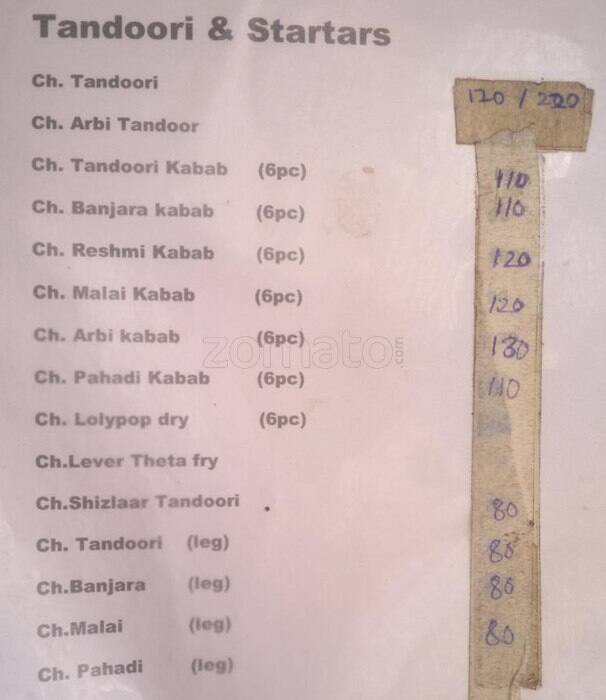 Tandoori & Startars
Ch. Tandoori 120 / 220
Ch. Arbi Tandoor
Ch. Tandoori Kabab (6pc) 110
Ch. Banjara kabab (6pc) 110
Ch. Reshmi Kabab (6pc) 120
Ch. Malai Kabab (6pc) 120
Ch. Arbi kabab (6pc) 130
Ch. Pahadi Kabab (6pc) 110
Ch. Lolypop dry (6pc)
Ch.Lever Theta fry
Ch.Shizlaar Tandoori 80
Ch. Tandoori (leg) 80
Ch.Banjara (leg) 80
Ch.Malai (leg) 80
Ch. Pahadi (leg)
zomato.com